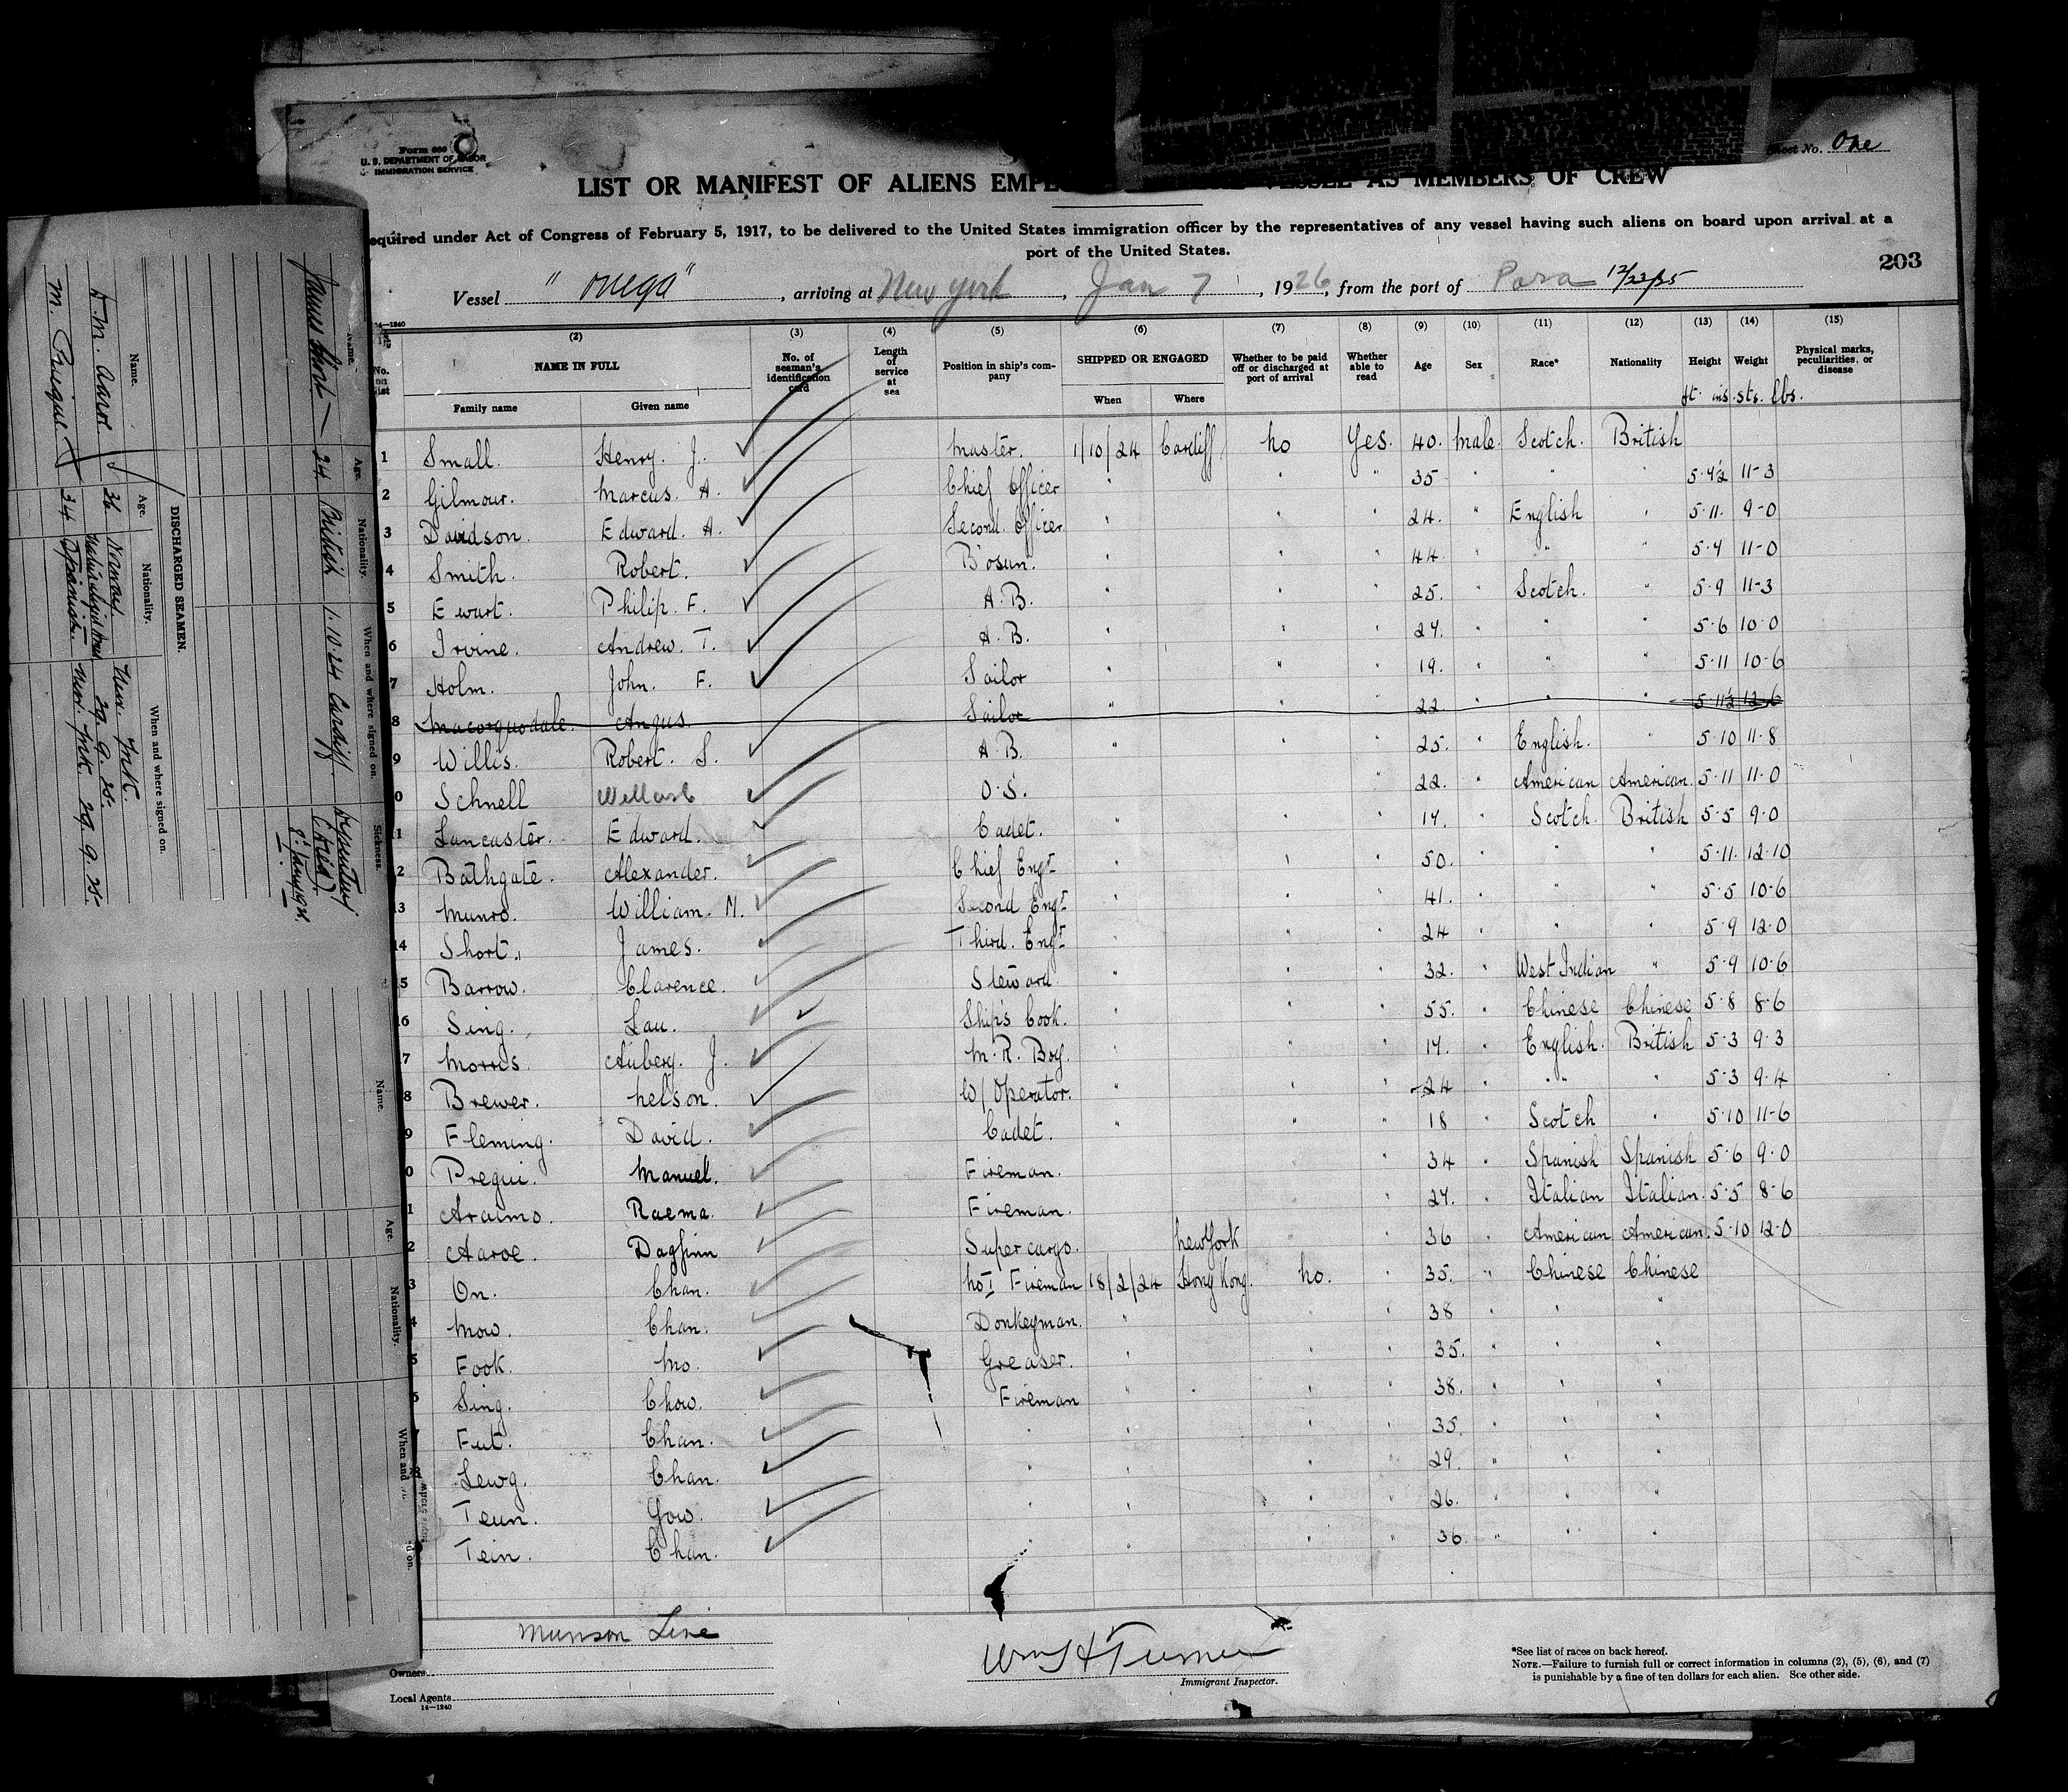 Form 680
U. S. DEPARTMENT OF LABOR
IMMIGRATION SERVICE
Sheet No. One
LIST OR MANIFEST OF ALIENS VESSEL AS MEMBERS OF CREW
equired under Act of Congress of February 5, 1917, to be delivered to the United States immigration officer by the representatives of any vessel having such aliens on board upon arrival at a
port of the United States.
203
Vessel "Onega", arriving at New York, Jan 7, 1926, from the port of Para 12/23/25
14—1240
(2) (3) (4) (5) (6) (7) (8) (9) (10) (11) (12) (13) (14) (15)
No. on list NAME IN FULL No. of seaman's identification card Length of service at sea Position in ship's company SHIPPED OR ENGAGED Whether to be paid off or discharged at port of arrival Whether able to read Age Sex Race* Nationality Height Weight Physical marks, peculiarities, or disease
Family name Given name When Where ft. ins. sts. lbs.
1 Small. Henry. J. Master. 1/10/24 Cardiff no Yes. 40. Male. Scotch. British
2 Gilmour. Marcus. A. Chief Officer " " " 35 " " " 5·4½ 11-3
3 Davidson. Edward. A. Second Officer " " " 24. " English " 5·11. 9-0
4 Smith. Robert. B'osun. " " " 44. " " " 5·4 11-0
5 Ewart. Philip. F. A.B. " " " 25. " Scotch. " 5·9 11-3
6 Irvine. Andrew. T. A.B. " " " 27. " " " 5·6 10·0
7 Holm. John. F. Sailor " " " 19. " " " 5·11 10-6
8 Macorquodale. Angus. Sailor " " " 22 " " " 5·11½ 12-6
9 Willis. Robert. S. A.B. " " " 25. " English. " 5·10 11-8
0 Schnell O.S. " 22. " American American. 5·11 11·0
1 Lancaster. Edward. Cadet. " " " 17. " Scotch. British 5·5 9·0
2 Bathgate. Alexander. Chief Engr " " " 50. " " " 5·11. 12·10
13 Munro. William. M. Second Engr " " " 41. " " " 5·5 10-6
14 Short. James. Third. Engr " " " 24 " " " 5·9 12·0
5 Barrow. Clarence. Steward " " " 32. " West Indian " 5·9 10-6
16 Sing. Lau. Ship's Cook. " " " 55. " Chinese Chinese 5·8 8·6
7 Morris. Aubery. J. M.R. Boy. " " " 17. " English. British 5·3 9·3
8 Brewer. Nelson. W/Operator. " " " 24 " " " 5·3 9·4
9 Fleming. David. Cadet. " " " 18 " Scotch " 5·10 11-6
0 Pregui. Manuel. Fireman. " " 34 " Spanish Spanish 5·6 9·0
1 Araimo. Raema. Fireman. " " 27. " Italian Italian. 5·5 8-6
2 Aaroe. Dagfinn Supercargo. New York " " 36 " American American. 5·10 12·0
3 On. Chan. No 1 Fireman 18/2/24 Hong Kong. no. " 35. " Chinese Chinese
4 Mow. Chan. Donkeyman. " " 38 " " "
5 Fook. Mo. Greaser. " " " 35. " " "
6 Sing. Chow. Fireman " " " " 38. " " "
7 Fut. Chan. " " " " 35. " " "
28 Lewg. Chan. " " " " 29. " " "
Teun. Gow. " " " " 26. " " "
Tein. Chan. " " " " 36. " " "
Munson Line
Owners
Local Agents
14—1240
Wm H Turner
Immigrant Inspector.
*See list of races on back hereof.
NOTE.—Failure to furnish full or correct information in columns (2), (5), (6), and (7)
is punishable by a fine of ten dollars for each alien. See other side.
Name. Age. Nationality. When and where signed on. Sickness.
James Short — 24 British 1.10.24 Cardiff. Dysentery
(Died)
DISCHARGED SEAMEN.
Name. Age. Nationality. When and where signed on.
Aaroe 36 Norway New York. 29.9.25.
M. 34 New York. 29.9.25.
Name. Age. Nationality. When and